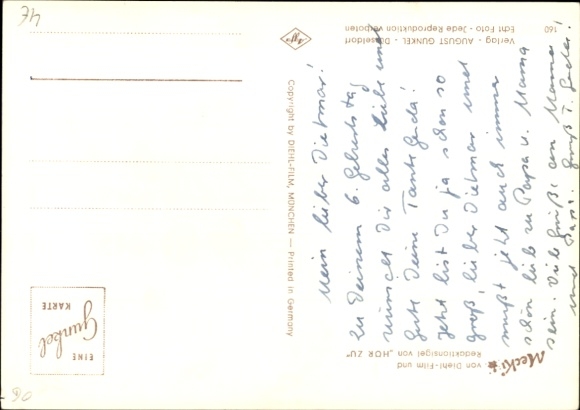 Mein lieber Dietmar!
Zu Deinem 6. Geburtstag
wünscht Dir alles Liebe und
Gute Deine Tante Gerda!
Jetzt bist Du ja schon so
groß, lieber Dietmar und
mußt jetzt auch immer
schön lieb zu Papa u. Mama
sein. Viele Grüße an Mama
und Papa. Gruß T. Gerda!
Mecki
von Diehl-Film und
Redaktionsigel von „HÖR ZU"
160
Verlag - AUGUST GUNKEL - Düsseldorf
Echt Foto - Jede Reproduktion verboten
Copyright by DIEHL-FILM, MÜNCHEN — Printed in Germany
EINE
Gunkel
KARTE